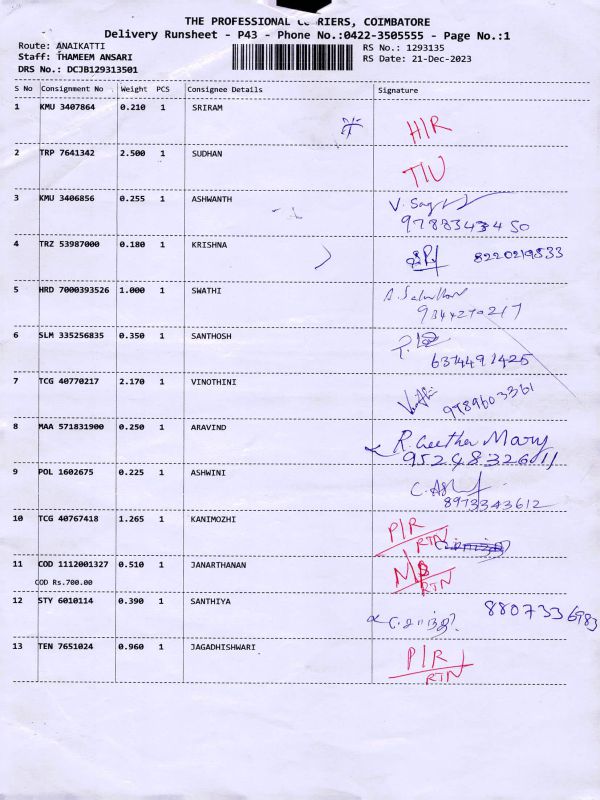 THE PROFESSIONAL COURIERS, COIMBATORE
Delivery Runsheet - P43 - Phone No.:0422-3505555 - Page No.:1
Route: ANAIKATTI RS No.: 1293135
Staff: THAMEEM ANSARI RS Date: 21-Dec-2023
DRS No.: DCJB129313501
S No Consignment No Weight PCS Consignee Details Signature
1 KMU 3407864 0.210 1 SRIRAM
H/R
2 TRP 7641342 2.500 1 SUDHAN
TIU
3 KMU 3406856 0.255 1 ASHWANTH
9788343450
4 TRZ 53987000 0.180 1 KRISHNA
8220219533
5 HRD 7000393526 1.000 1 SWATHI
9344270217
6 SLM 335256835 0.350 1 SANTHOSH
6374491425
7 TCG 40770217 2.170 1 VINOTHINI
9789603361
8 MAA 571831900 0.250 1 ARAVIND
R. Geetha Mary
9524832601
9 POL 1602675 0.225 1 ASHWINI
8973343612
10 TCG 40767418 1.265 1 KANIMOZHI
P/R
RTN
11 COD 1112001327 0.510 1 JANARTHANAN
COD Rs.700.00
RTN
12 STY 6010114 0.390 1 SANTHIYA
8807336983
13 TEN 7651024 0.960 1 JAGADHISHWARI
P/R
RTN